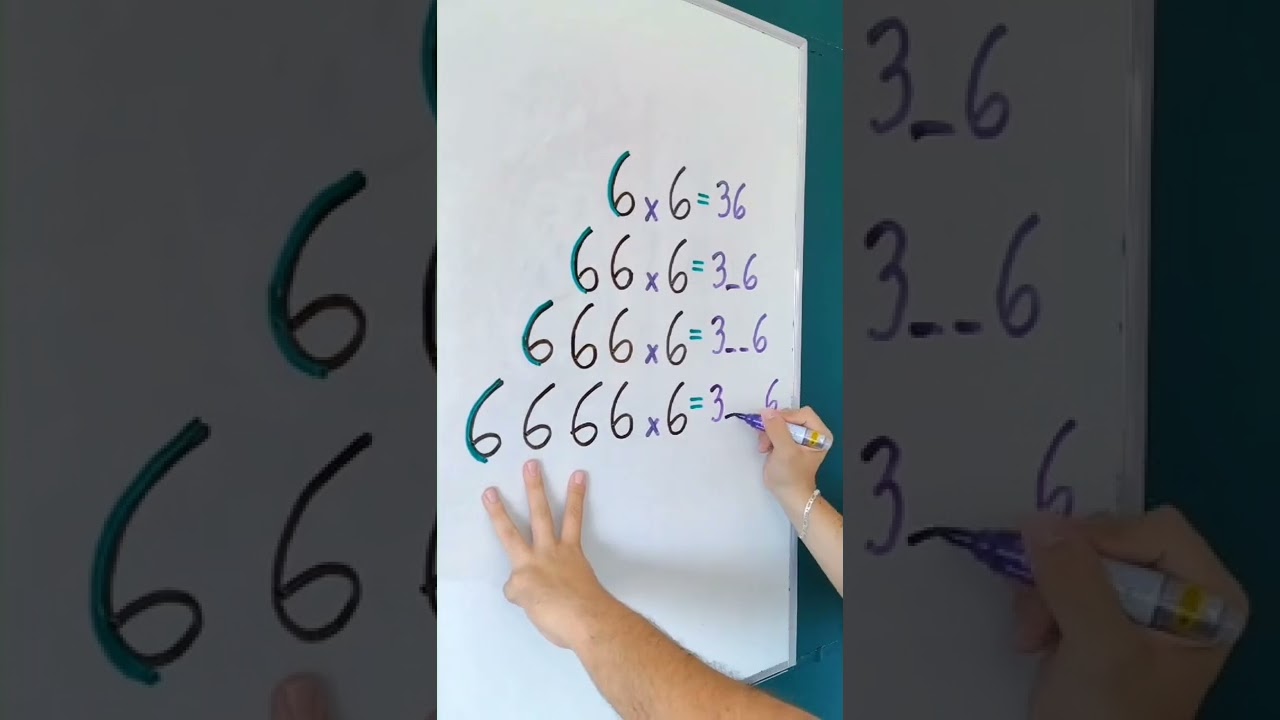 6 x 6 = 36
6 6 x 6 = 3_6
6 6 6 x 6 = 3__6
6 6 6 6 x 6 = 3_ 6